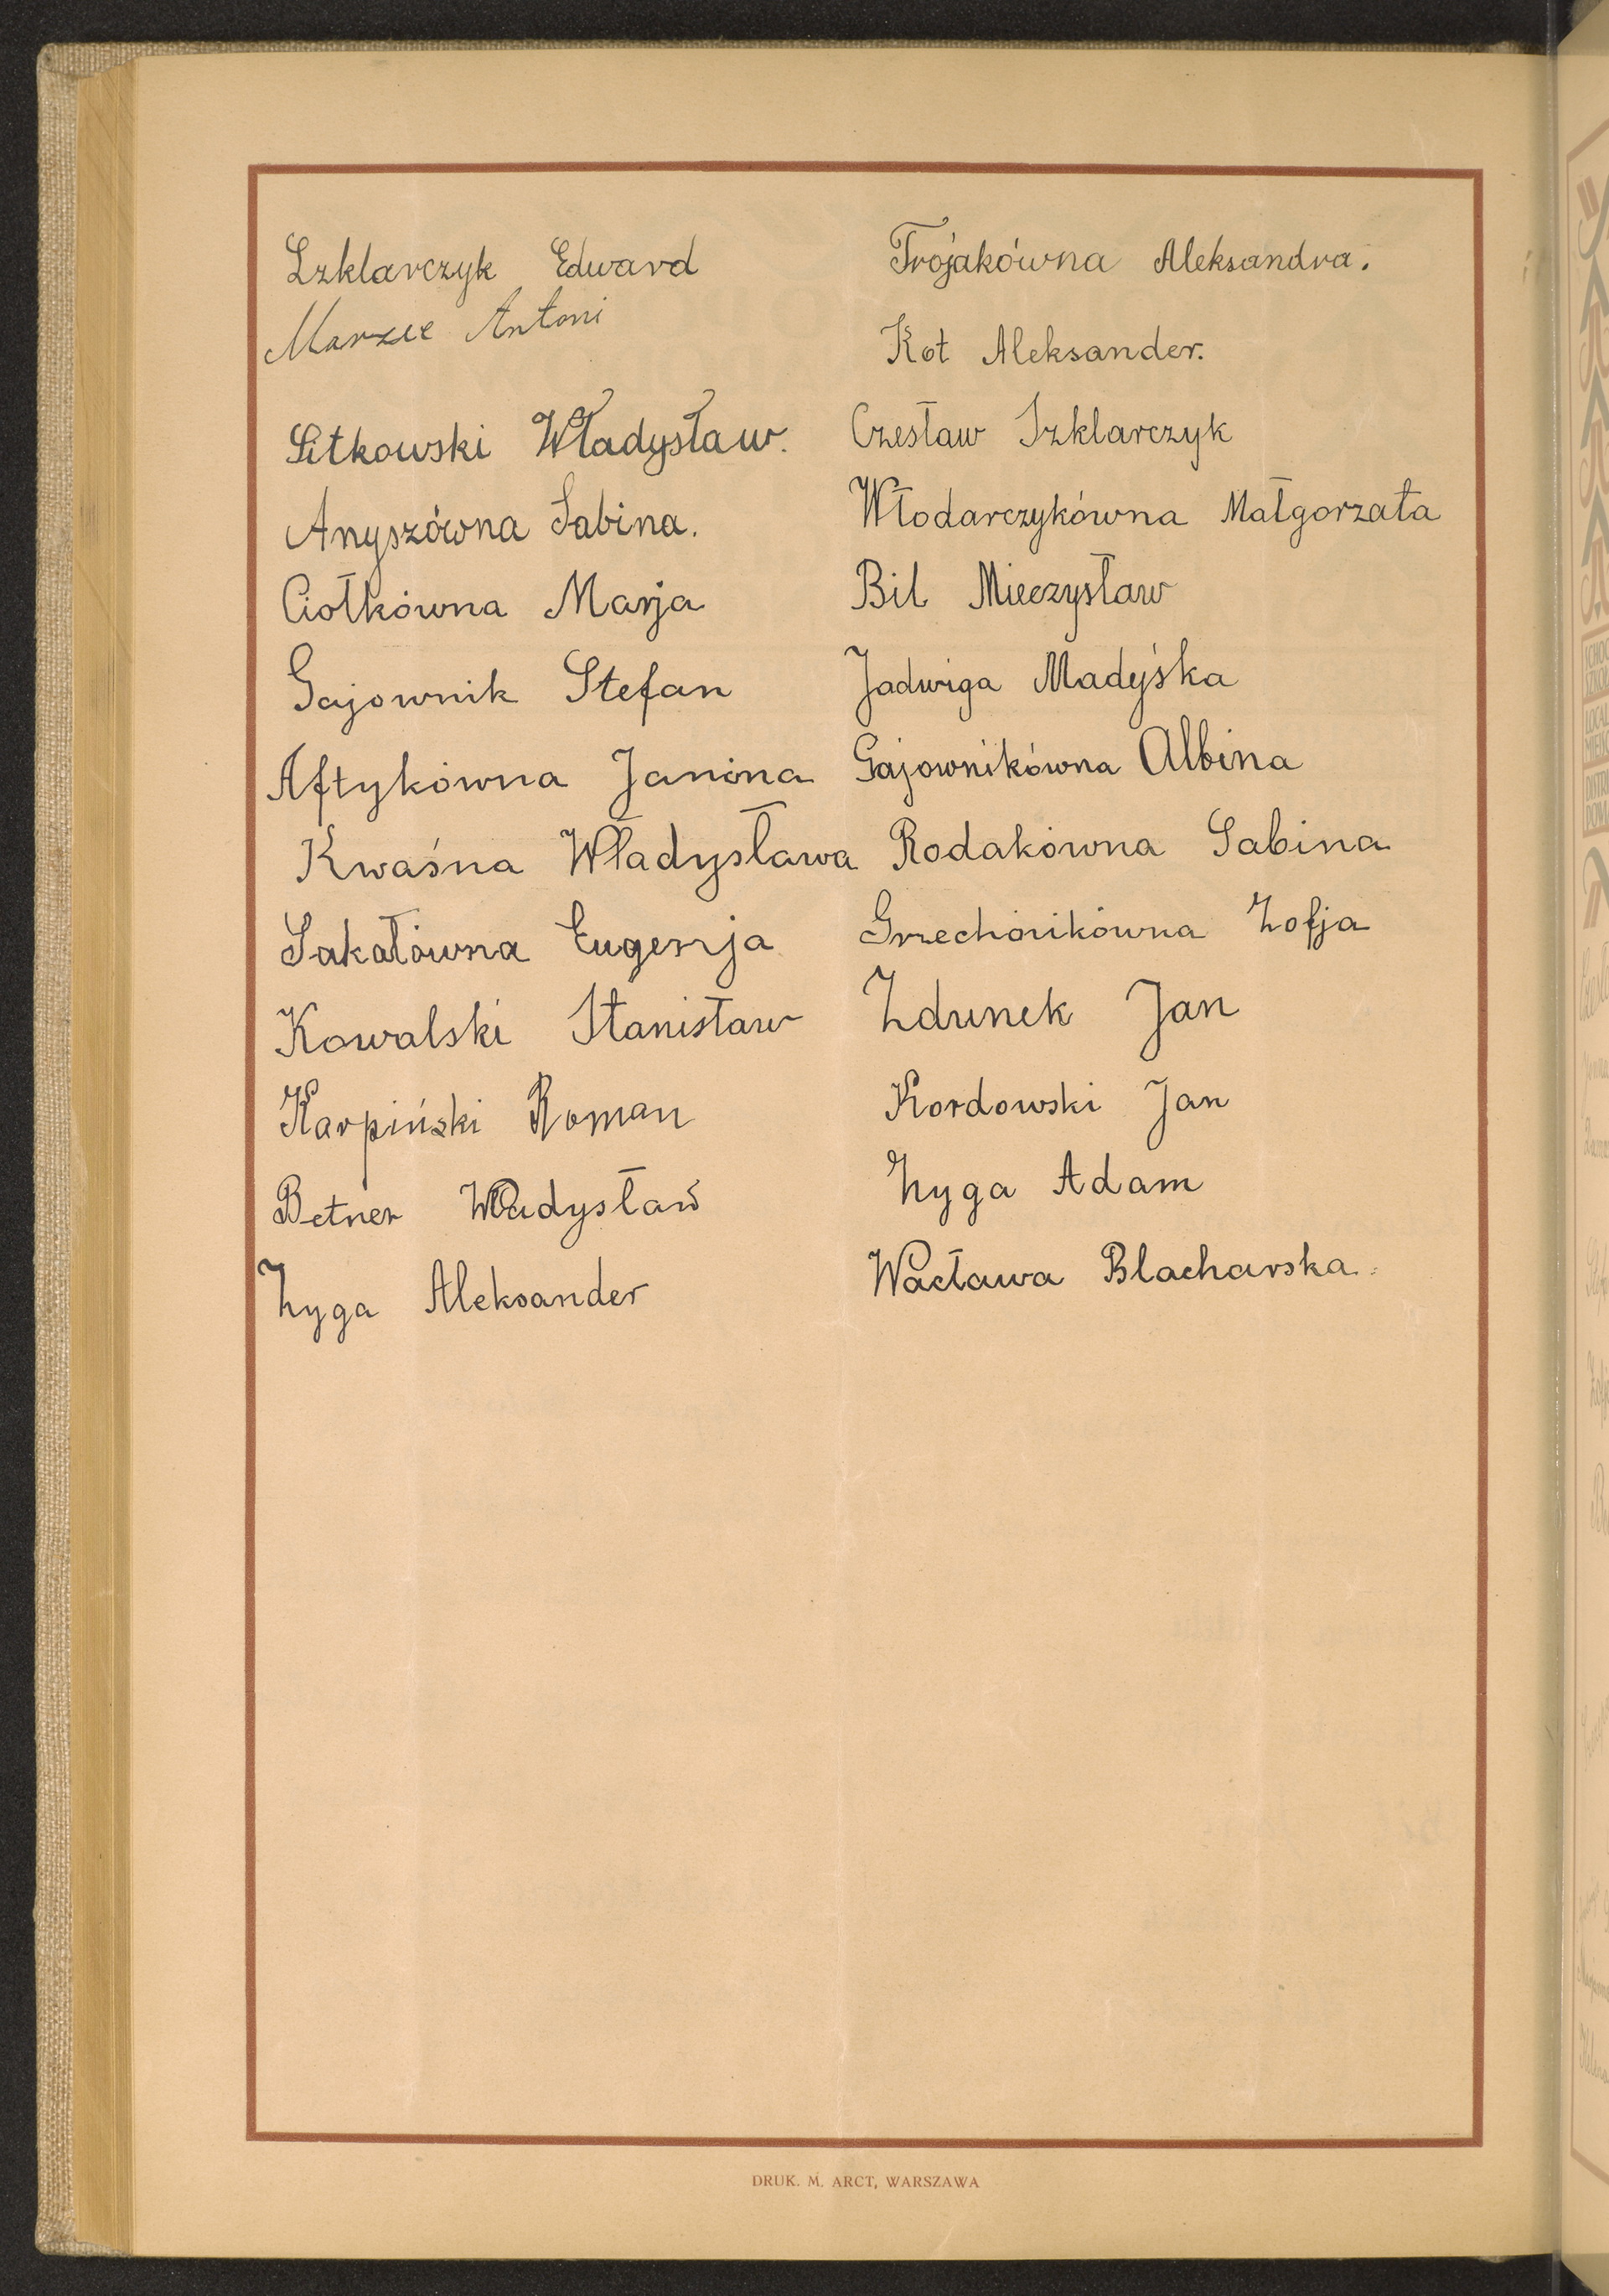 Szklarczyk Edward
Marzec Antoni
Sitkowski Władysław.
Anyszówna Sabina.
Ciołkówna Marja
Gajownik Stefan
Aftykówna Janina
Kwaśna Władysława
Sakałówna Eugenja
Kowalski Stanisław
Karpiński Roman
Betner Władysław
Zyga Aleksander
Trójakówna Aleksandra.
Kot Aleksander.
Czesław Szklarczyk
Włodarczykówna Małgorzata
Bil Mieczysław
Jadwiga Madejska
Gajownikówna Albina
Rodakówna Sabina
Grzechnikówna Zofja
Zdunek Jan
Kordowski Jan
Zyga Adam
Wacława Blacharska.
DRUK. M. ARCT, WARSZAWA